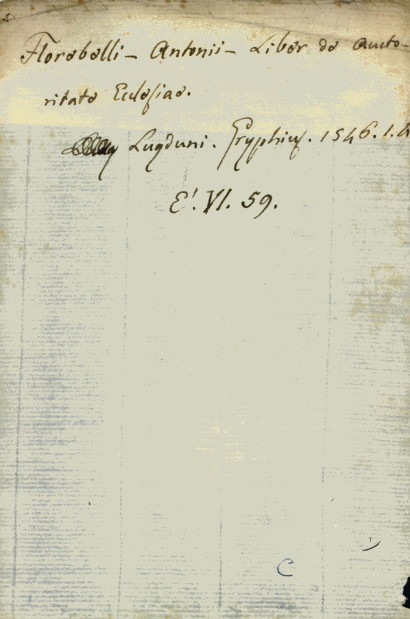 Florebelli - Antonii - Liber de Aucto-
ritate Eclesiae.
Lugduni. Gryphius. 1546. 1.
E'. VI. 59.
C